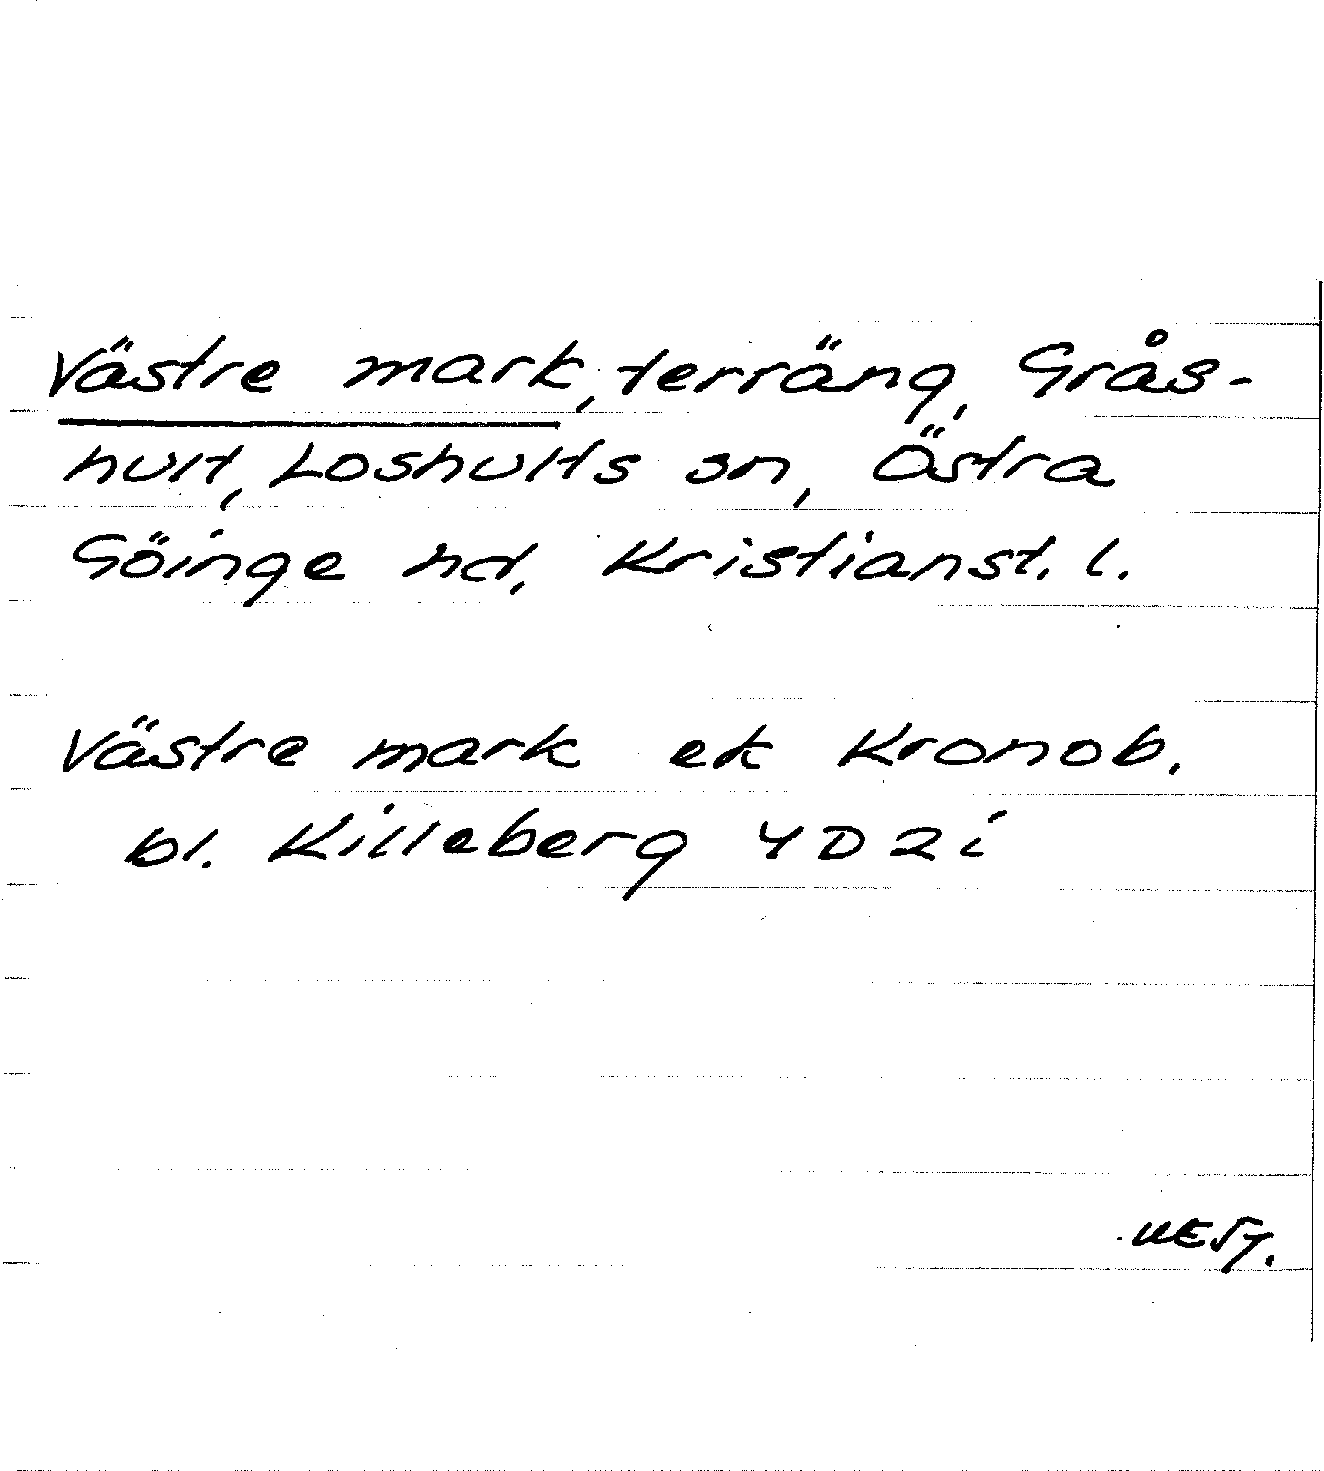 Västre mark, terräng, Grås-
hult, Loshults sn, Östra
Göinge hd, Kristianst. l.
Västre mark ek Kronob.
bl. Killeberg 4D 2i